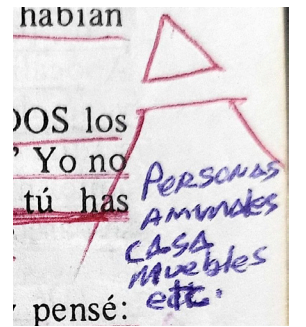 habían
DOS los
Yo no
tú has
pensé:
PERSONAS
ANIMALES
CASA
Muebles
etc.